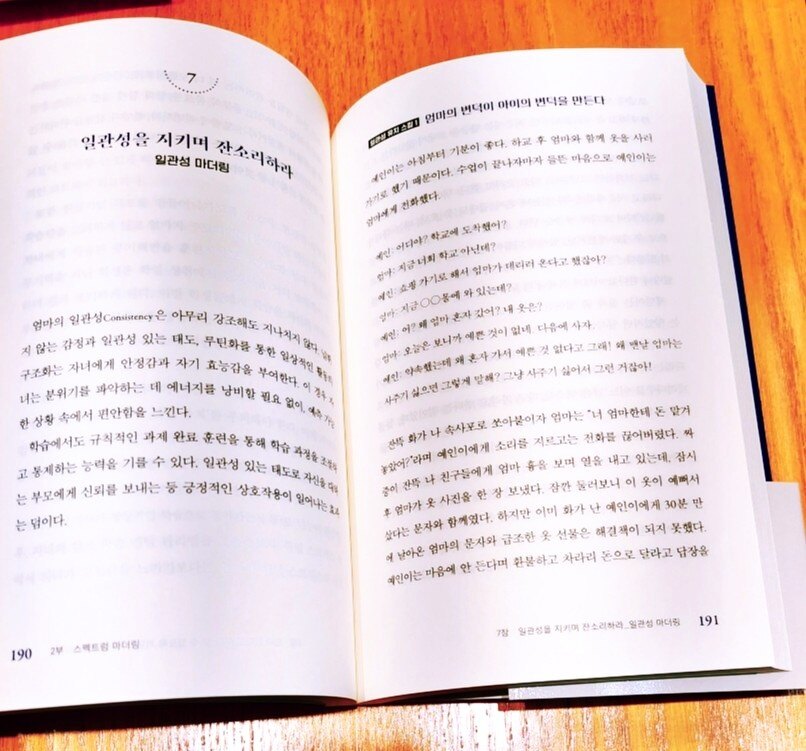 7
일관성을 지키며 잔소리하라
일관성 마더링
엄마의 일관성Consistency은 아무리 강조해도 지나치지 않다.
지 않는 감정과 일관성 있는 태도, 루틴화를 통한 일상적인 활동의
구조화는 자녀에게 안정감과 자기 효능감을 부여한다. 이 경우
녀는 분위기를 파악하는 데 에너지를 낭비할 필요 없이, 예측 가능
한 상황 속에서 편안함을 느낀다.
학습에서도 규칙적인 과제 완료 훈련을 통해 학습 과정을 조절하
고 통제하는 능력을 기를 수 있다. 일관성 있는 태도로 자신을 대하
는 부모에게 신뢰를 보내는 등 긍정적인 상호작용이 일어나는 효과
는 덤이다.
190 2부 스펙트럼 마더링
일관성 유지 스킬 1 엄마의 변덕이 아이의 변덕을 만든다
예인이는 아침부터 기분이 좋다. 하교 후 엄마와 함께 옷을 사러
가기로 했기 때문이다. 수업이 끝나자마자 들뜬 마음으로 예인이는
엄마에게 전화했다.
예인: 어디야? 학교에 도착했어?
엄마: 지금 너희 학교 아닌데?
예인: 쇼핑 가기로 해서 엄마가 데리러 온다고 했잖아?
엄마: 지금 ○○몰에 와 있는데?
예인: 어? 왜 엄마 혼자 갔어? 내 옷은?
엄마: 오늘은 보니까 예쁜 것이 없네. 다음에 사자.
예인: 약속했는데 왜 혼자 가서 예쁜 것 없다고 그래! 왜 맨날 엄마는
사주기 싫으면 그렇게 말해? 그냥 사주기 싫어서 그런 거잖아!
잔뜩 화가 나 속사포로 쏘아붙이자 엄마는 "너 엄마한테 돈 맡겨
놓았어?"라며 예인이에게 소리를 지르고는 전화를 끊어버렸다. 짜
증이 잔뜩 나 친구들에게 엄마 흉을 보며 열을 내고 있는데, 잠시
후 엄마가 옷 사진을 한 장 보냈다. 잠깐 둘러보니 이 옷이 예뻐서
샀다는 문자와 함께였다. 하지만 이미 화가 난 예인이에게 30분 만
에 날아온 엄마의 문자와 급조한 옷 선물은 해결책이 되지 못했다.
예인이는 마음에 안 든다며 환불하고 차라리 돈으로 달라고 답장을
7장 일관성을 지키며 잔소리하라_일관성 마더링 191